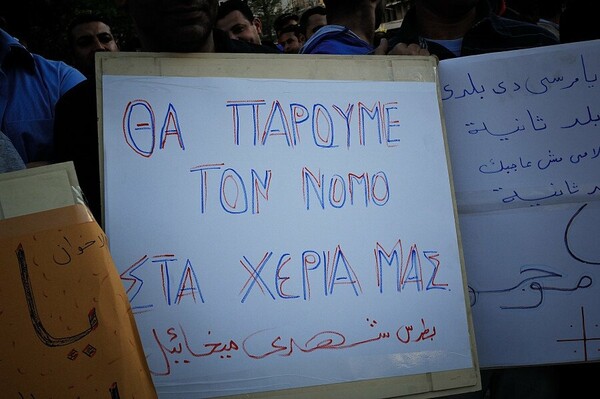 ΘΑ ΠΑΡΟΥΜΕ
ΤΟΝ ΝΟΜΟ
ΣΤΑ ΧΕΡΙΑ ΜΑΣ.
بطرس شهدى ميخائيل
يا مرسى دى بلدى
بلد ثانية
مش عاجبك
ثانية
يا